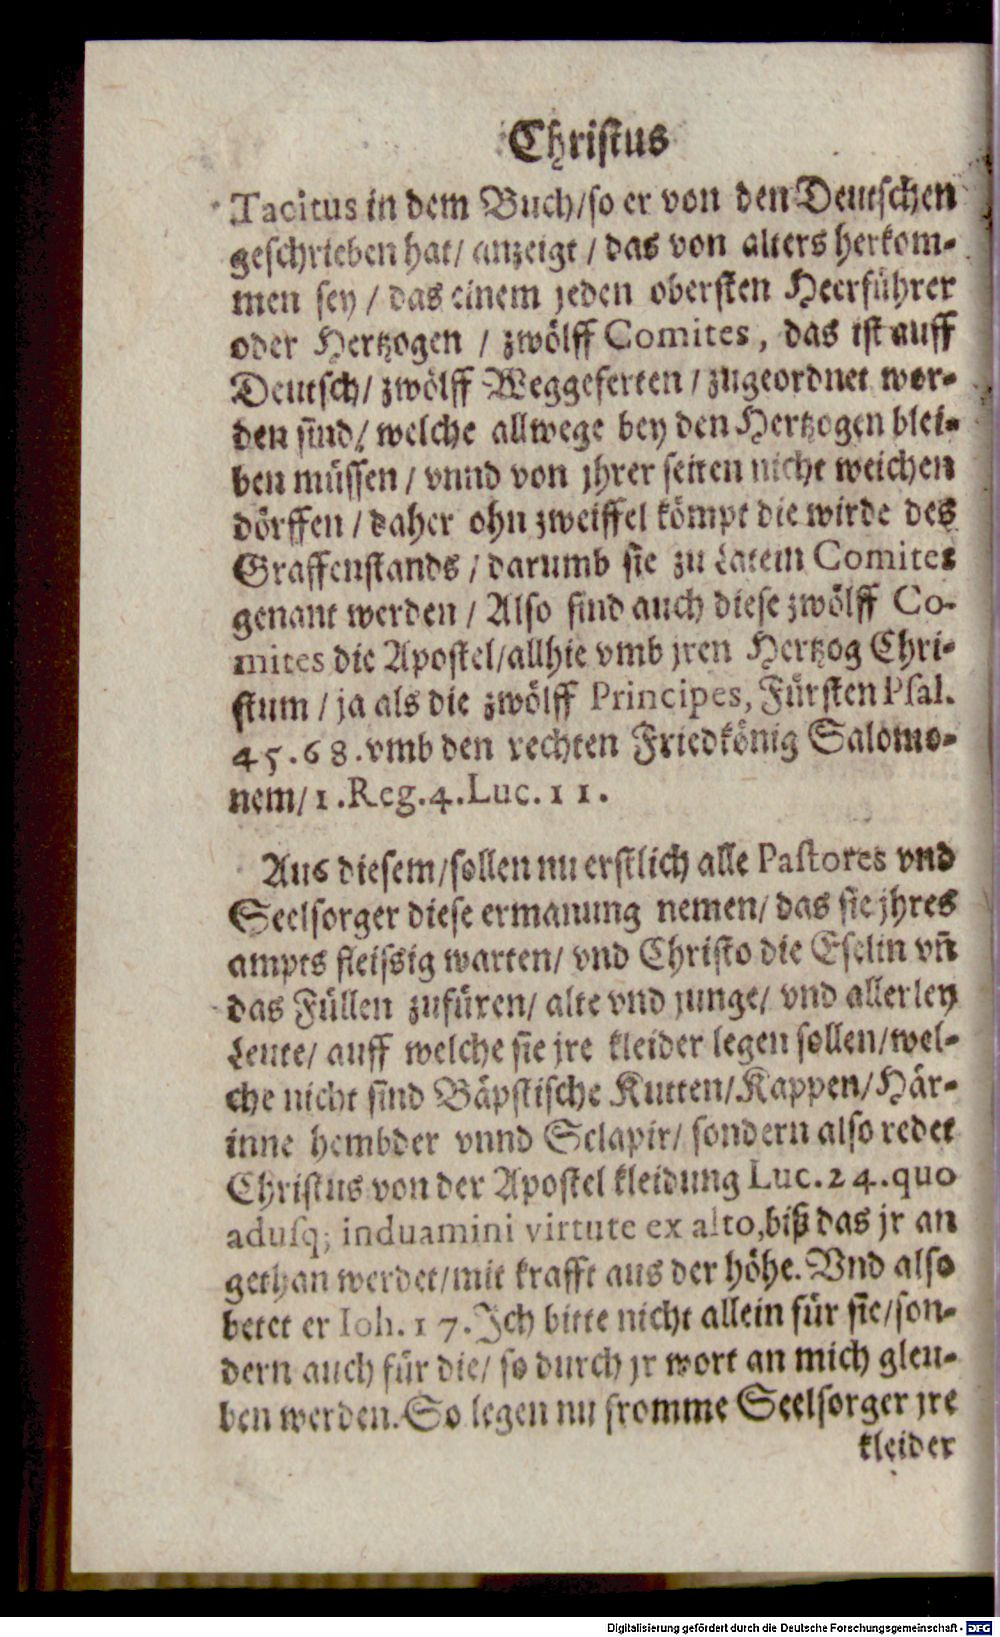 Christus
Tacitus in dem Buch/so er von den Deutschen
geschrieben hat/ anzeigt / das von alters herkom-
men sey / das einem jeden obersten Heerführer
oder Hertzogen / zwölff Comites, das ist auff
Deutsch/ zwölff Weggeferten / zugeordnet wor-
den sind/ welche allwege bey den Hertzogen blei-
ben müssen / vnnd von jhrer seiten nicht weichen
dörffen / daher ohn zweiffel kömpt die wirde des
Graffenstands / darumb sie zu Latein Comites
genant werden / Also sind auch diese zwölff Co-
mites die Apostel/allhie vmb jren Hertzog Chri-
stum / ja als die zwölff Principes, Fürsten Psal.
45.68.vmb den rechten Friedkönig Salomo-
nem/ 1.Reg.4.Luc.11.
Aus diesem/sollen nu erstlich alle Pastores vnd
Seelsorger diese ermanung nemen/ das sie jhres
ampts fleissig warten/ vnd Christo die Eselin vn̄
das Füllen zufüren/ alte vnd junge/ vnd allerley
Leute/ auff welche sie jre kleider legen sollen/wel-
che nicht sind Bäpstische Kutten/Kappen/Här-
inne hembder vnnd Sclapir/ sondern also redet
Christus von der Apostel kleidung Luc.24.quo
adusq; induamini virtute ex alto,biß das jr an
gethan werdet/mit krafft aus der höhe. Vnd also
betet er Ioh.17.Ich bitte nicht allein für sie/son-
dern auch für die/ so durch jr wort an mich gleu-
ben werden.So legen nu fromme Seelsorger jre
kleider
Digitalisierung gefördert durch die Deutsche Forschungsgemeinschaft - DFG